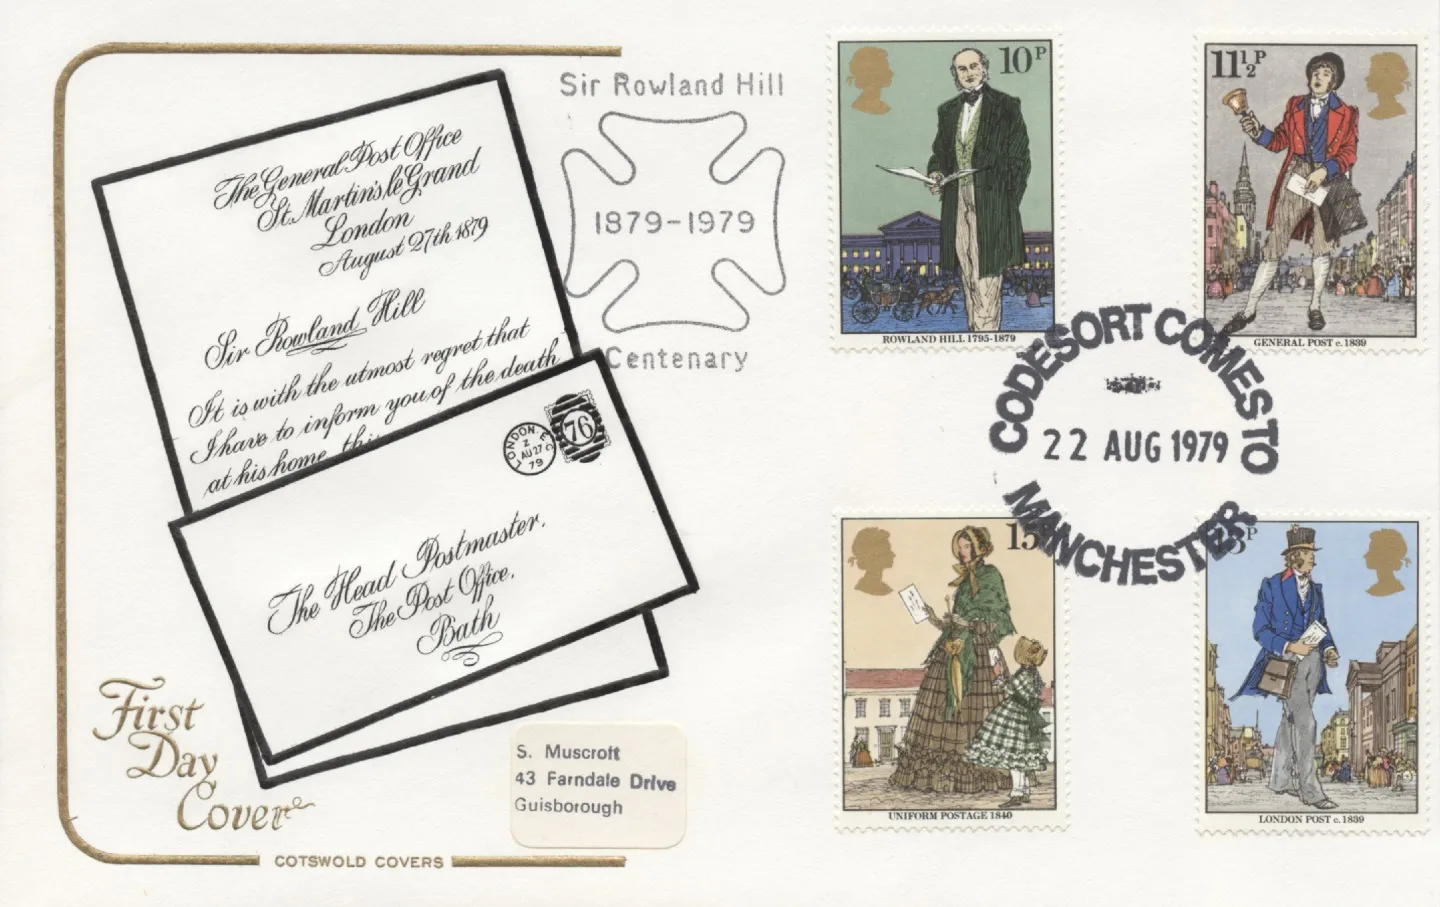 The General Post Office
St. Martin's le Grand
London
August 27th 1879
Sir Rowland Hill
It is with the utmost regret that
I have to inform you of the death
at his home, this
LONDON. E.C.
Z
AU 27
79
76
The Head Postmaster,
The Post Office,
Bath
First
Day
Cover
COTSWOLD COVERS
S. Muscroft
43 Farndale Drive
Guisborough
Sir Rowland Hill
1879-1979
Centenary
10P
ROWLAND HILL 1795-1879
11½P
GENERAL POST c.1839
CODESORT COMES TO
22 AUG 1979
MANCHESTER
15
UNIFORM POSTAGE 1840
P
LONDON POST c.1839